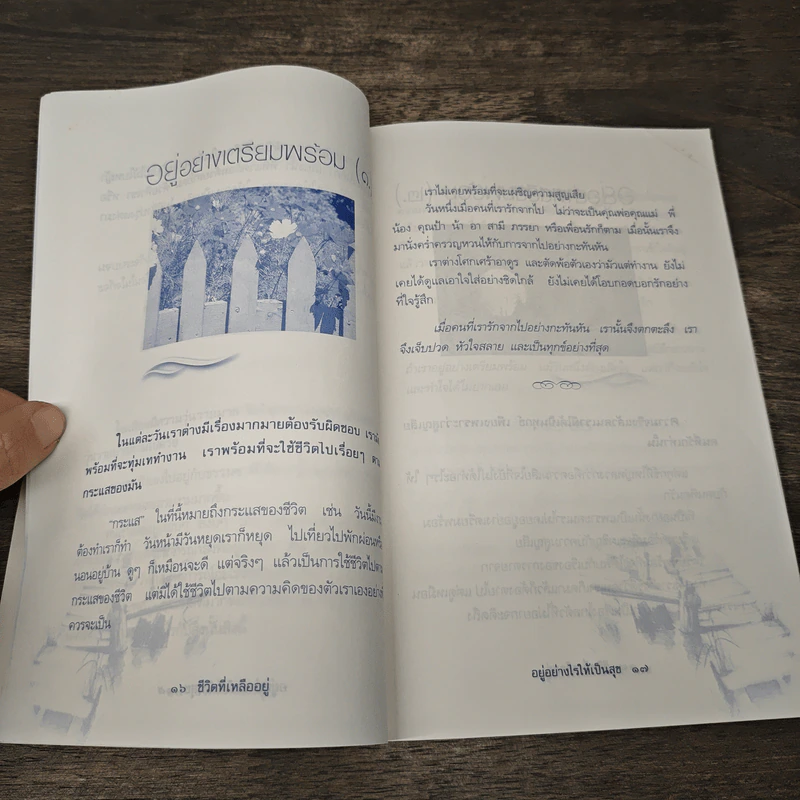 อยู่อย่างเตรียมพร้อม (๑
ในแต่ละวันเราต่างมีเรื่องมากมายต้องรับผิดชอบ
พร้อมที่จะทุ่มเททำงาน เราพร้อมที่จะใช้ชีวิตไปเรื่อยๆ ตาม
กระแสของมัน
"กระแส" ในที่นี้หมายถึงกระแสของชีวิต เช่น วันนี้มี
ต้องทำเราก็ทำ วันหน้ามีวันหยุดเราก็หยุด ไปเที่ยวไปพักผ่อน
นอนอยู่บ้าน ดูๆ ก็เหมือนจะดี แต่จริงๆ แล้วเป็นการใช้ชีวิตไปตาม
กระแสของชีวิต แต่มิได้ใช้ชีวิตไปตามความคิดของตัวเราเองอย่างที่
ควรจะเป็น
๑๖ ชีวิตที่เหลืออยู่
เราไม่เคยพร้อมที่จะเผชิญความสูญเสีย
วันหนึ่งเมื่อคนที่เรารักจากไป ไม่ว่าจะเป็นคุณพ่อคุณแม่ พี่
น้อง คุณป้า น้า อา สามี ภรรยา หรือเพื่อนรักก็ตาม เมื่อนั้นเราจึง
มานั่งคร่ำครวญหวนไห้กับการจากไปอย่างกะทันหัน
เราต่างโศกเศร้าอาดูร และตัดพ้อตัวเองว่ามัวแต่ทำงาน ยังไม่
เคยได้ดูแลเอาใจใส่อย่างชิดใกล้ ยังไม่เคยได้โอบกอดบอกรักอย่าง
ที่ใจรู้สึก
เมื่อคนที่เรารักจากไปอย่างกะทันหัน เรานั้นจึงตกตะลึง เรา
จึงเจ็บปวด หัวใจสลาย และเป็นทุกข์อย่างที่สุด
อยู่อย่างไรให้เป็นสุข ๑๗